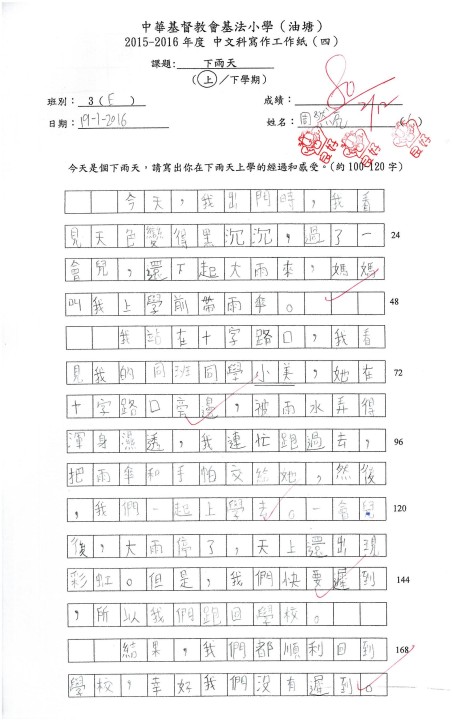 中華基督教會基法小學（油塘）
2015-2016 年度 中文科寫作工作紙（四）
課題： 下雨天
（上/下學期）
班別： 3 ( E ) 成績： 80
日期： 19-1-2016 姓名： 周
今天是個下雨天，請寫出你在下雨天上學的經過和感受。(約 100-120 字)
今天，我出門時，我看
見天色變得黑沉沉，過了一 24
會兒，還下起大雨來，媽媽
叫我上學前帶雨傘。 48
我站在十字路口，我看
見我的同班同學小美，她在 72
十字路口旁邊，被雨水弄得
渾身濕透，我連忙跑過去， 96
把雨傘和手怕交給她，然後
，我們一起上學去。一會兒 120
後，大雨停了，天上還出現
彩虹。但是，我們快要遲到 144
，所以我們跑回學校。
結果，我們都順利回到 168
學校，幸好我們沒有遲到。